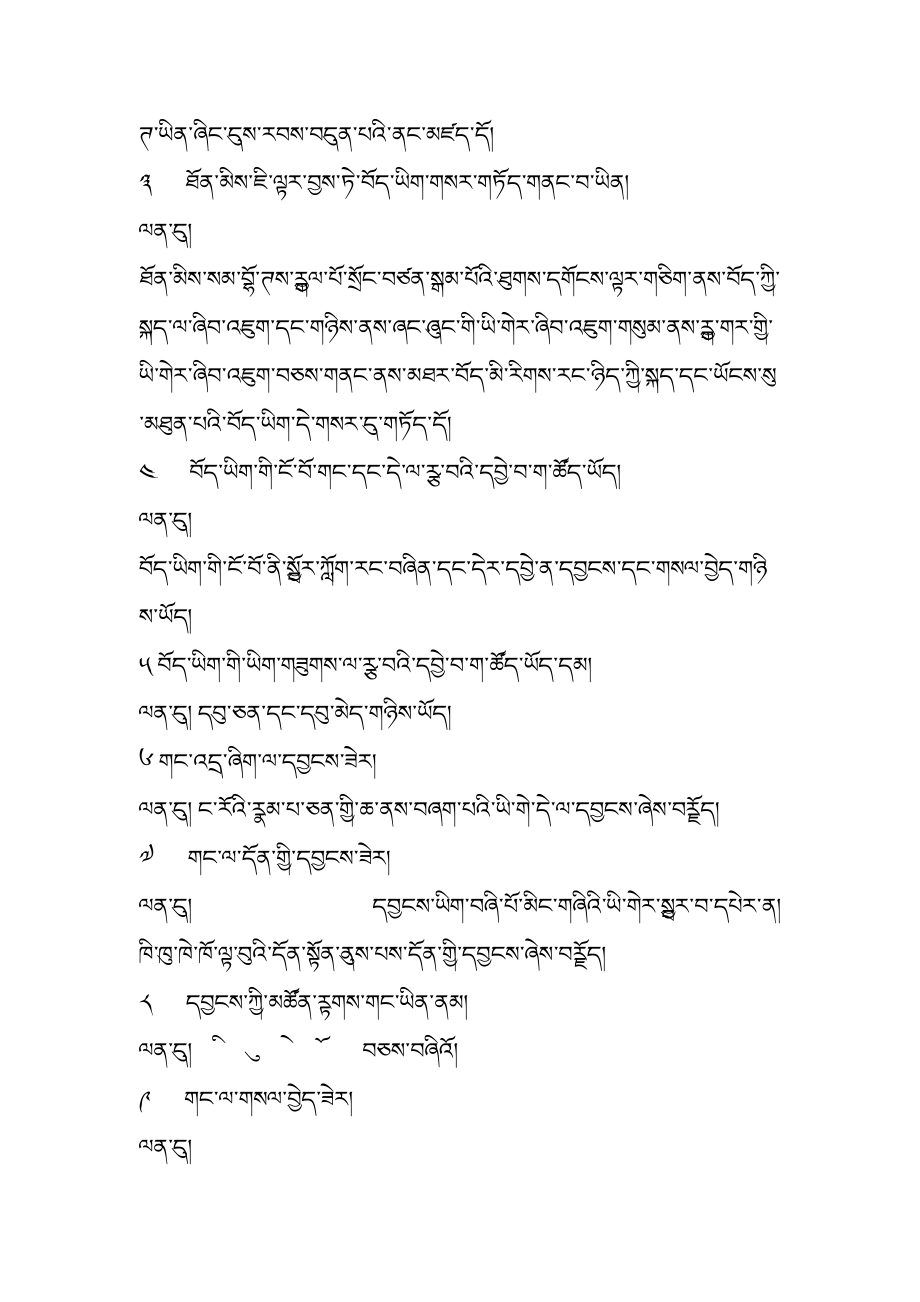 ཊ་ཡིན་ཞིང་དུས་རབས་བདུན་པའི་ནང་མཛད་དོ།
༣ ཐོན་མིས་ཇི་ལྟར་བྱས་ཏེ་བོད་ཡིག་གསར་གཏོད་གནང་བ་ཡིན།
ལན་དུ།
ཐོན་མིས་སམ་བྷོ་ཊས་རྒྱལ་པོ་སྲོང་བཙན་སྒམ་པོའི་ཐུགས་དགོངས་ལྟར་གཅིག་ནས་བོད་ཀྱི་
སྐད་ལ་ཞིབ་འཇུག་དང་གཉིས་ནས་ཞང་ཞུང་གི་ཡི་གེར་ཞིབ་འཇུག་གསུམ་ནས་རྒྱ་གར་གྱི་
ཡི་གེར་ཞིབ་འཇུག་བཅས་གནང་ནས་མཐར་བོད་མི་རིགས་རང་ཉིད་ཀྱི་སྐད་དང་ཡོངས་སུ
་མཐུན་པའི་བོད་ཡིག་དེ་གསར་དུ་གཏོད་དོ།
༤ བོད་ཡིག་གི་ངོ་བོ་གང་དང་དེ་ལ་རྩ་བའི་དབྱེ་བ་ག་ཚོད་ཡོད།
ལན་དུ།
བོད་ཡིག་གི་ངོ་བོ་ནི་སྦྱོར་ཀློག་རང་བཞིན་དང་དེར་དབྱེ་ན་དབྱངས་དང་གསལ་བྱེད་གཉི
ས་ཡོད།
༥ བོད་ཡིག་གི་ཡིག་གཟུགས་ལ་རྩ་བའི་དབྱེ་བ་ག་ཚོད་ཡོད་དམ།
ལན་དུ། དབུ་ཅན་དང་དབུ་མེད་གཉིས་ཡོད།
༦ གང་འདྲ་ཞིག་ལ་དབྱངས་ཟེར།
ལན་དུ། ང་རོའི་རྣམ་པ་ཅན་གྱི་ཆ་ནས་བཞག་པའི་ཡི་གེ་དེ་ལ་དབྱངས་ཞེས་བརྗོད།
༧ གང་ལ་དོན་གྱི་དབྱངས་ཟེར།
ལན་དུ། དབྱངས་ཡིག་བཞི་པོ་མིང་གཞིའི་ཡི་གེར་སྦྱར་བ་དཔེར་ན།
ཁི་ཁུ་ཁེ་ཁོ་ལྟ་བུའི་དོན་སྟོན་ནུས་པས་དོན་གྱི་དབྱངས་ཞེས་བརྗོད།
༨ དབྱངས་ཀྱི་མཚོན་རྟགས་གང་ཡིན་ནམ།
ལན་དུ། ི ུ ེ ོ བཅས་བཞིའོ།
༩ གང་ལ་གསལ་བྱེད་ཟེར།
ལན་དུ།